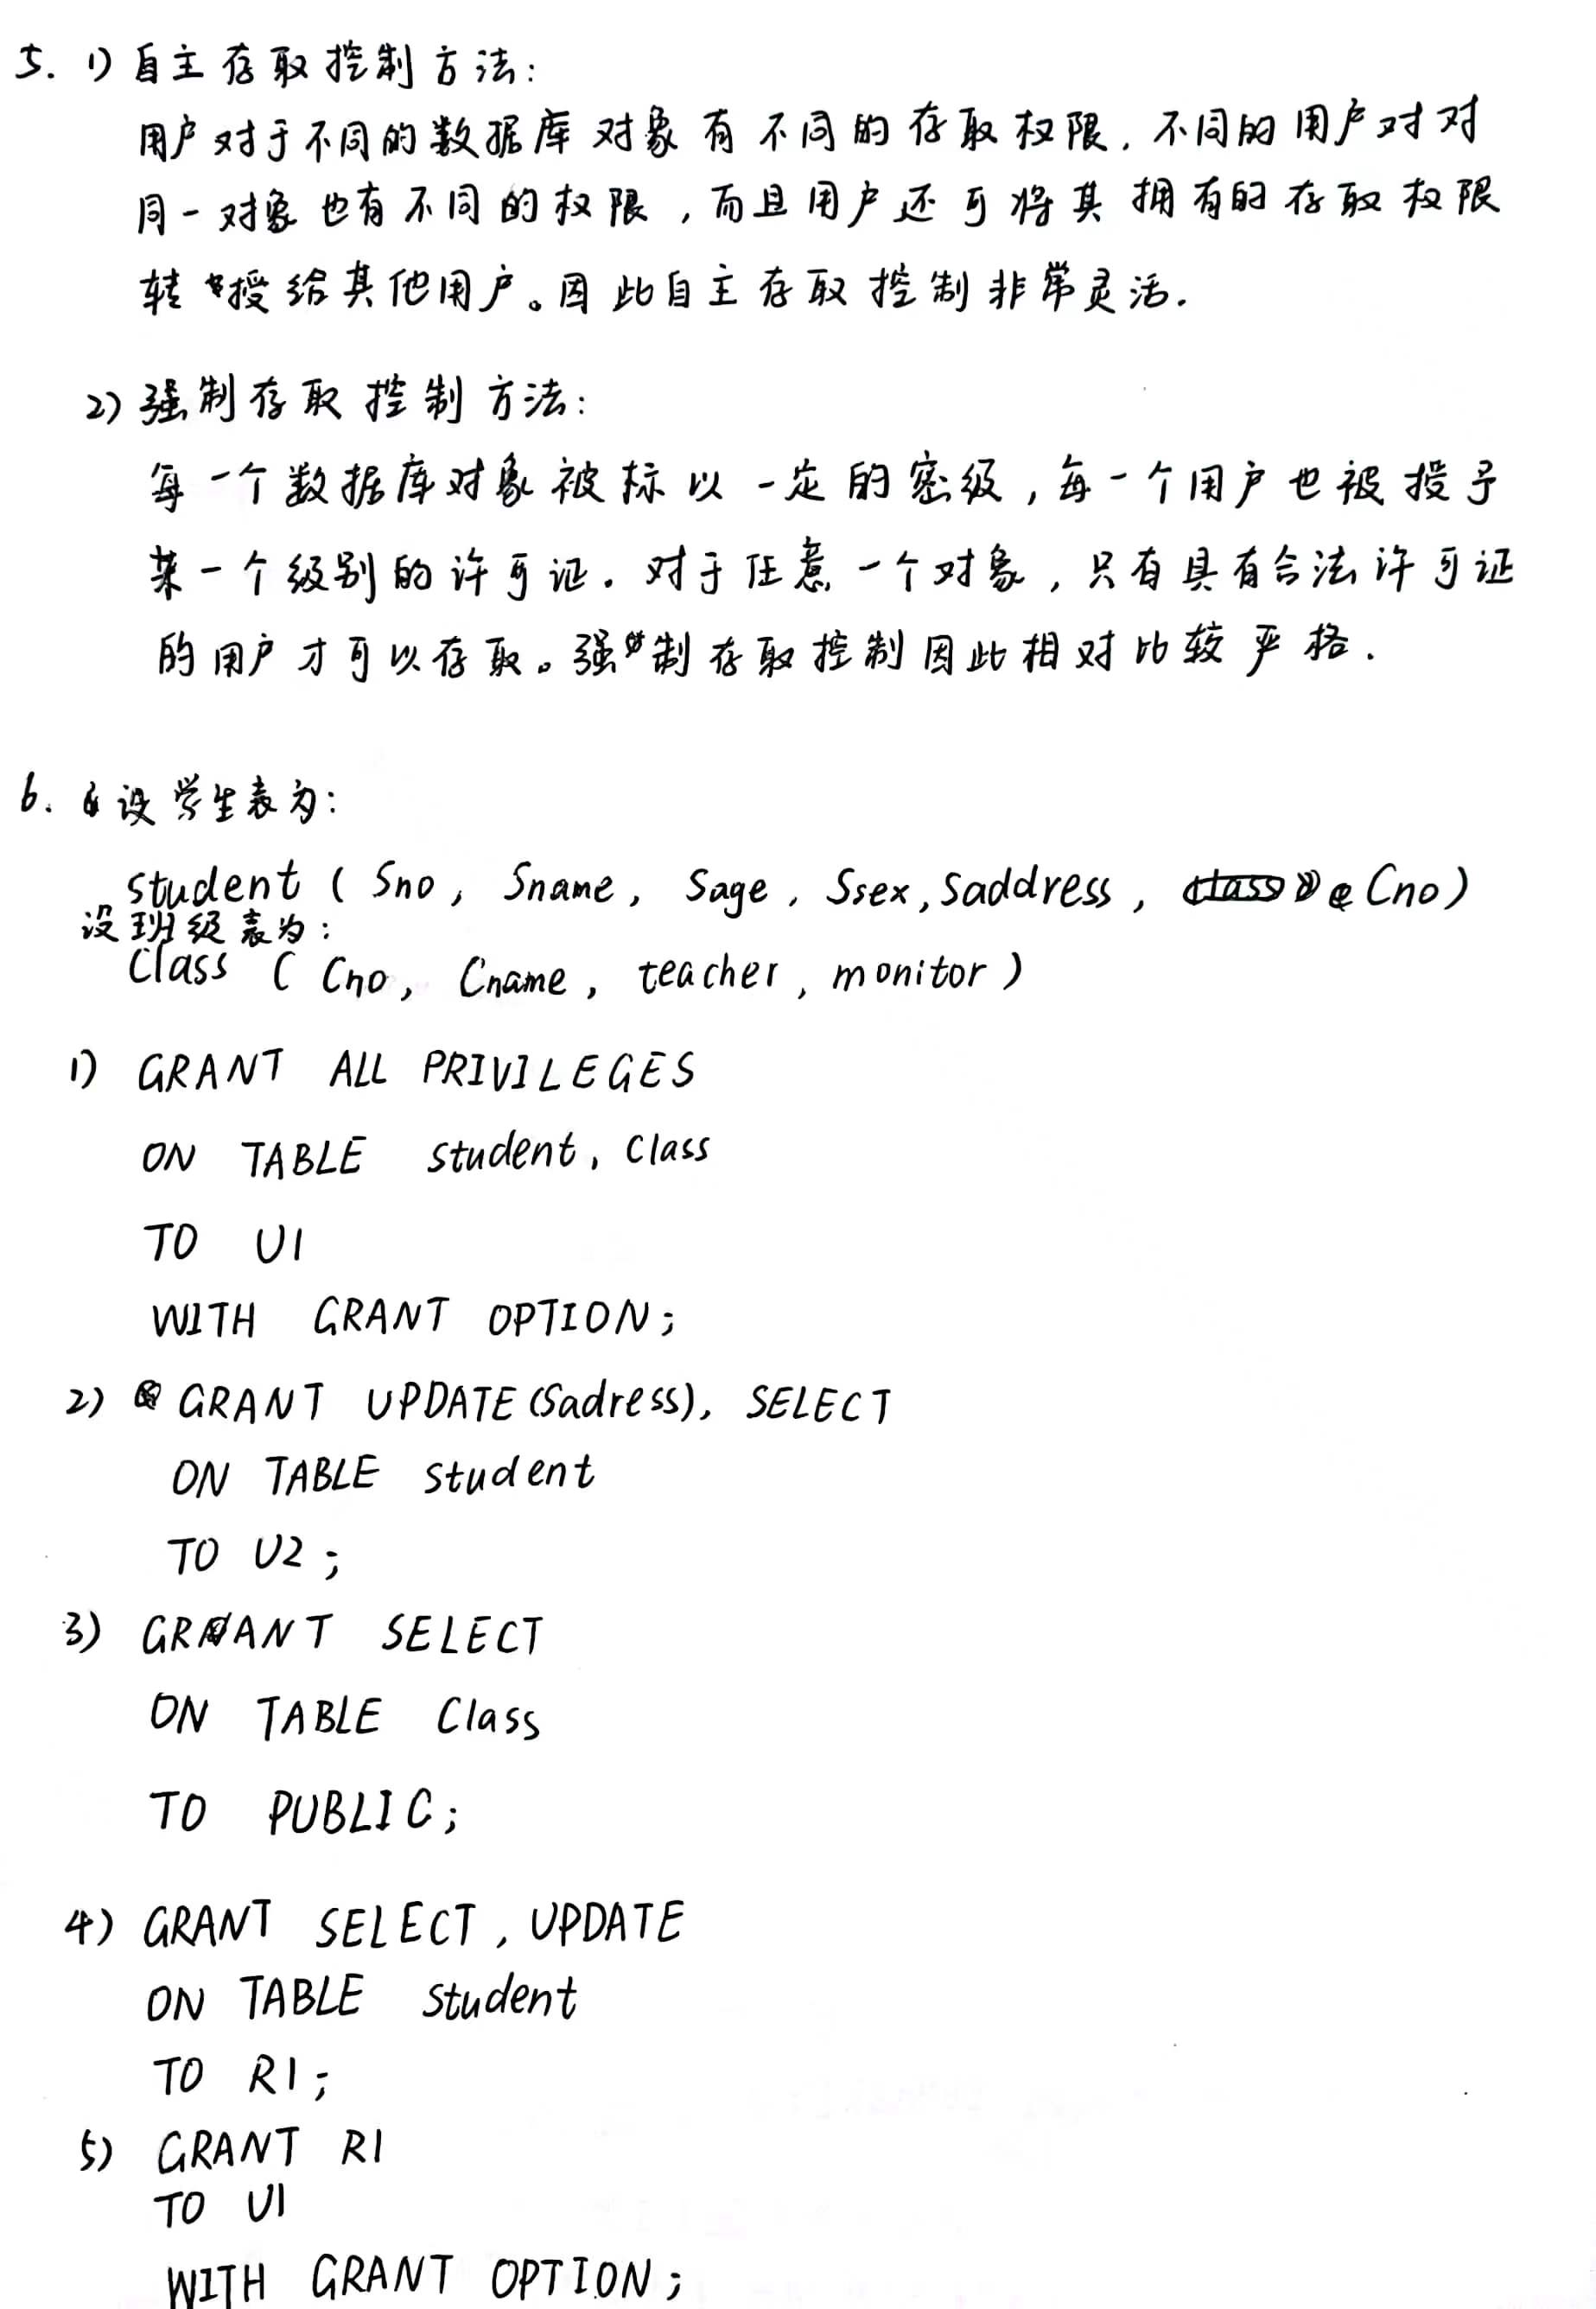 5. 1) 自主存取控制方法:
用户对于不同的数据库对象有不同的存取权限, 不同的用户对对
同一对象也有不同的权限, 而且用户还可将其拥有的存取权限
转授给其他用户。因此自主存取控制非常灵活.
2) 强制存取控制方法:
每一个数据库对象被标以一定的密级, 每一个用户也被授予
某一个级别的许可证. 对于任意一个对象, 只有具有合法许可证
的用户才可以存取。强制存取控制因此相对比较严格.
6. 设学生表为:
student ( Sno, Sname, Sage, Ssex, Saddress, Cno)
设班级表为:
Class ( Cno, Cname, teacher, monitor )
1) GRANT ALL PRIVILEGES
ON TABLE student, Class
TO U1
WITH GRANT OPTION;
2) GRANT UPDATE(Sadress), SELECT
ON TABLE student
TO U2;
3) GRANT SELECT
ON TABLE Class
TO PUBLIC;
4) GRANT SELECT, UPDATE
ON TABLE student
TO R1;
5) GRANT R1
TO U1
WITH GRANT OPTION;